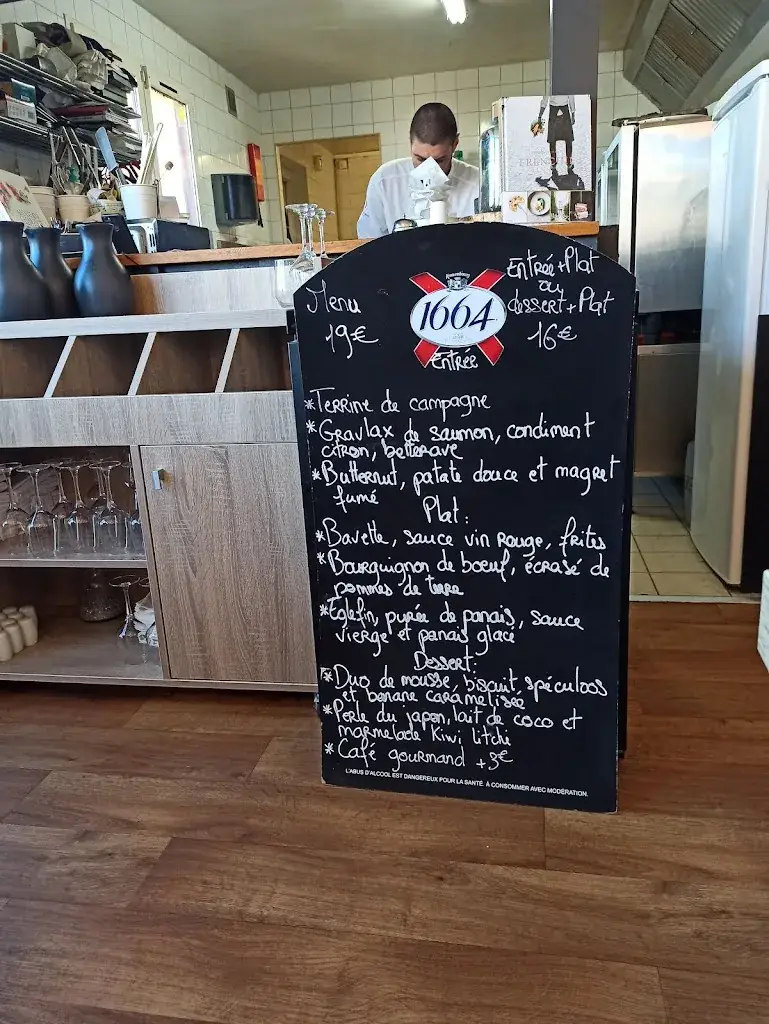 Menu
19€
1664
Entrée+Plat
ou
dessert+Plat
16€
Entrée
*Terrine de campagne
*Gravlax de saumon, condiment
citron, betterave
*Butternut, patate douce et magret
fumé
Plat:
*Bavette, sauce vin rouge, frites
*Bourguignon de boeuf, écrasé de
pommes de terre
*Eglefin, purée de panais, sauce
vierge et panais glacé
Dessert:
*Duo de mousse, biscuit, spéculoos
et banane caramélisée
*Perle du japon, lait de coco et
marmelade Kiwi litchi
*Café gourmand +3€
L'ABUS D'ALCOOL EST DANGEREUX POUR LA SANTÉ. À CONSOMMER AVEC MODÉRATION.